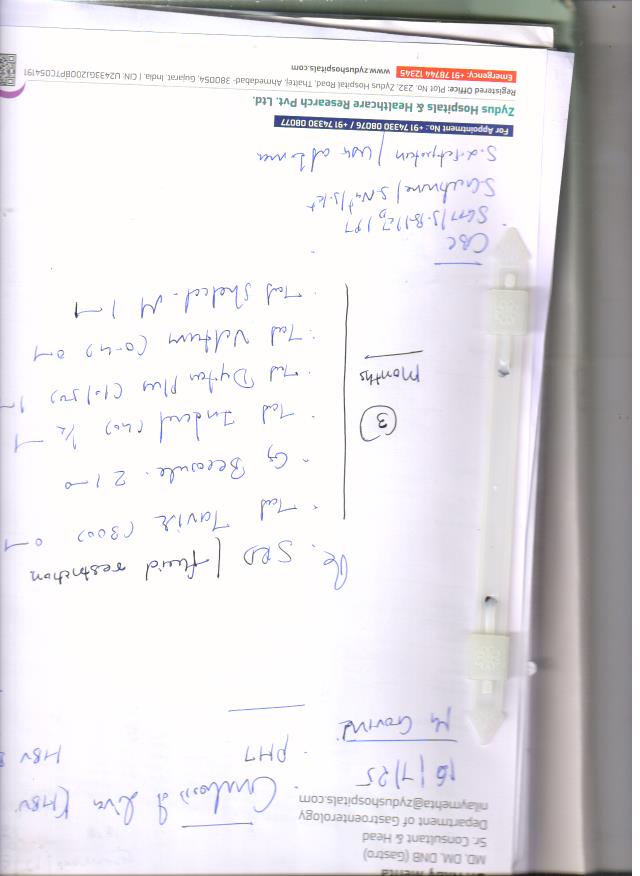 MD, DM, DNB (Gastro)
Sr. Consultant & Head
Department of Gastroenterology
nilaymehta@zydushospitals.com
16/7/25
Cirrhosis of Liver (HBV
PHT
HBV
Mr Govind
Rx. SRD / fluid restriction
Tab Tavin (300) 0-1
Cap Becosule. Z 1-0
Tab Inderal (40) 1/2 - 1
Tab Dytor Plus (10/50) 1-
Tab Veltam (0.4) 0-1
Tab Shelcal-M 1-1
3
Months
CBC
SGPT/S.Bil/Zn/PT
S.Creatinine/S.Na+/S.K+
S.α-fetoprotein / USG abdomen
For Appointment No.: +91 74330 08076 / +91 74330 08077
Zydus Hospitals & Healthcare Research Pvt. Ltd.
Registered Office: Plot No. 232, Zydus Hospital Road, Thaltej, Ahmedabad- 380054, Gujarat, India. | CIN: U24233GJ2008PTC054191
Emergency: +91 78744 12345 www.zydushospitals.com